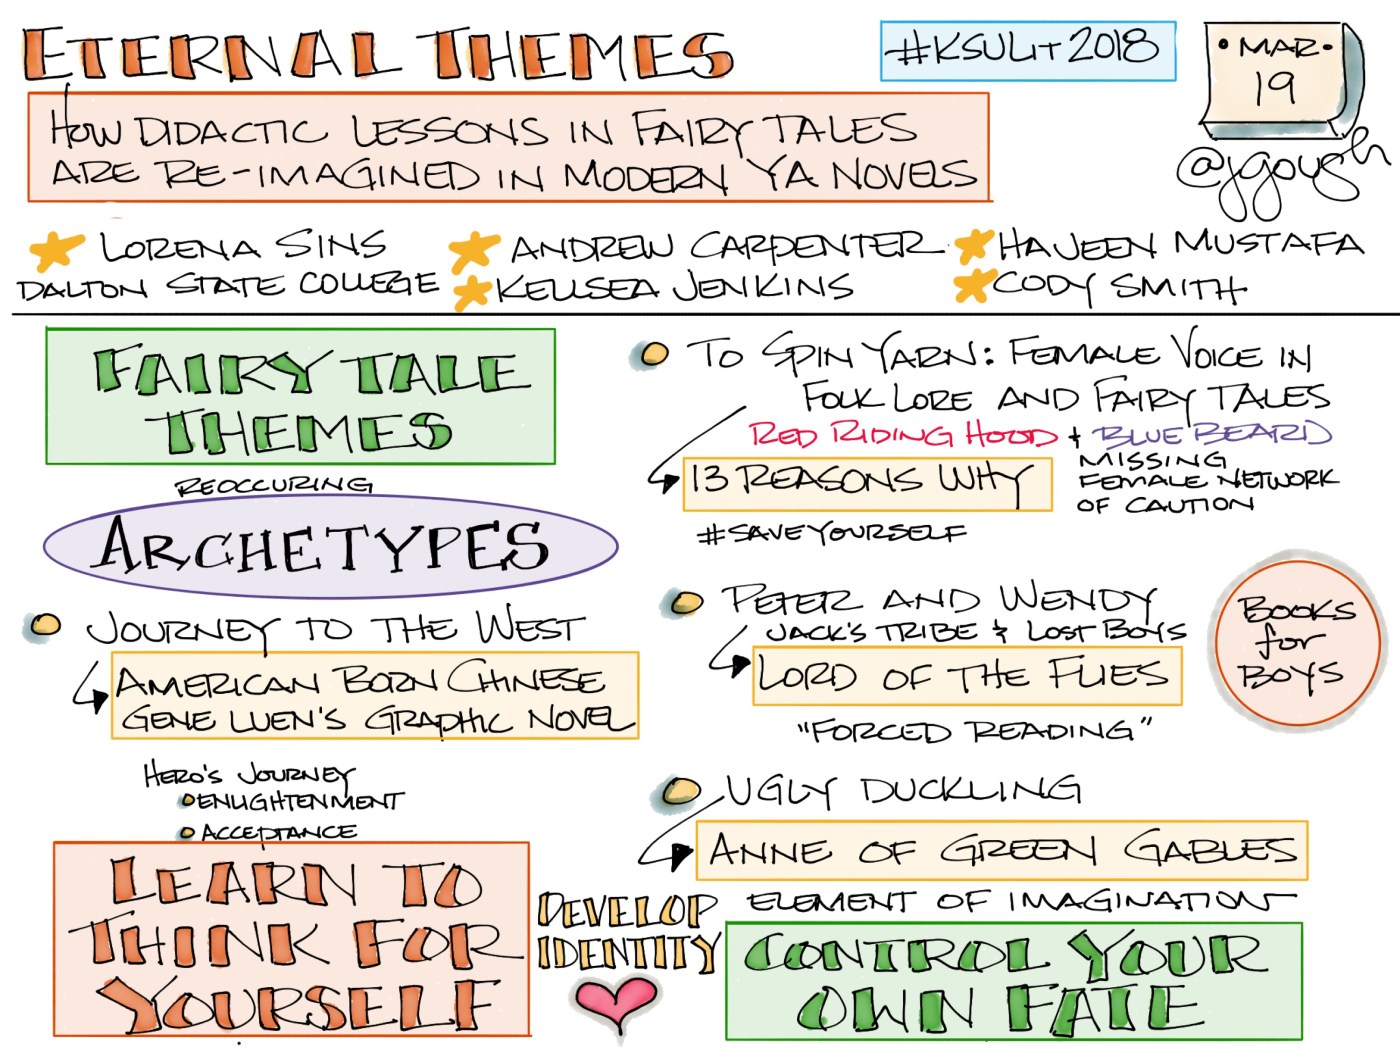 ETERNAL THEMES
#KSULit2018
• MAR •
19
HOW DIDACTIC LESSONS IN FAIRY TALES
ARE RE-IMAGINED IN MODERN YA NOVELS
@jgough
LORENA SINS
DALTON STATE COLLEGE
ANDREW CARPENTER
KELLSEA JENKINS
HAJEEN MUSTAFA
CODY SMITH
FAIRY TALE
THEMES
REOCCURING
ARCHETYPES
JOURNEY TO THE WEST
AMERICAN BORN CHINESE
GENE LUEN'S GRAPHIC NOVEL
HERO'S JOURNEY
ENLIGHTENMENT
ACCEPTANCE
LEARN TO
THINK FOR
YOURSELF
DEVELOP
IDENTITY
TO SPIN YARN: FEMALE VOICE IN
FOLK LORE AND FAIRY TALES
RED RIDING HOOD + BLUE BEARD
13 REASONS WHY
#SAVEYOURSELF
MISSING
FEMALE NETWORK
OF CAUTION
PETER AND WENDY
JACK'S TRIBE & LOST BOYS
LORD OF THE FLIES
"FORCED READING"
BOOKS
for
BOYS
UGLY DUCKLING
ANNE OF GREEN GABLES
ELEMENT OF IMAGINATION
CONTROL YOUR
OWN FATE